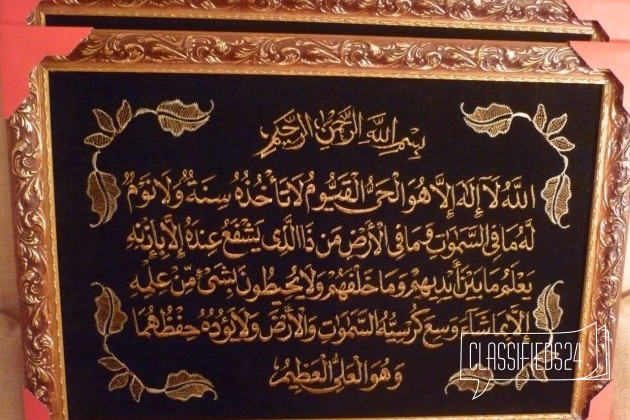 بِسْمِ اللهِ الرَّحْمٰنِ الرَّحِيْمِ
اَللهُ لَآ اِلٰهَ اِلَّا هُوَ الْحَيُّ الْقَيُّوْمُ لَا تَأْخُذُهٗ سِنَةٌ وَّلَا نَوْمٌ
لَهٗ مَا فِي السَّمٰوٰتِ وَمَا فِي الْاَرْضِ مَنْ ذَا الَّذِيْ يَشْفَعُ عِنْدَهٗ اِلَّا بِاِذْنِهٖ
يَعْلَمُ مَا بَيْنَ اَيْدِيْهِمْ وَمَا خَلْفَهُمْ وَلَا يُحِيْطُوْنَ بِشَيْءٍ مِّنْ عِلْمِهٖ
اِلَّا بِمَا شَآءَ وَسِعَ كُرْسِيُّهُ السَّمٰوٰتِ وَالْاَرْضَ وَلَا يَؤُدُهٗ حِفْظُهُمَا
وَهُوَ الْعَلِيُّ الْعَظِيْمُ
CLASSIFIEDS24